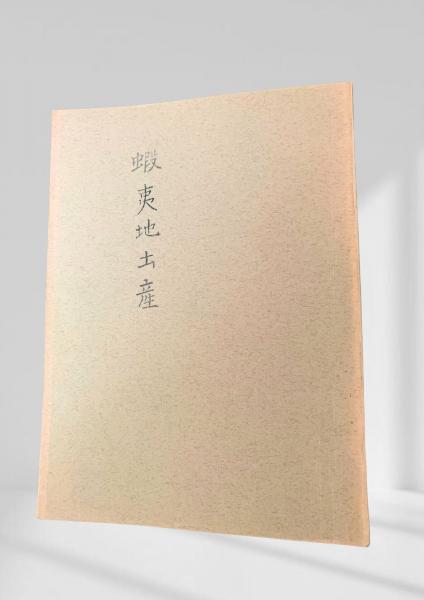 蝦夷地土産